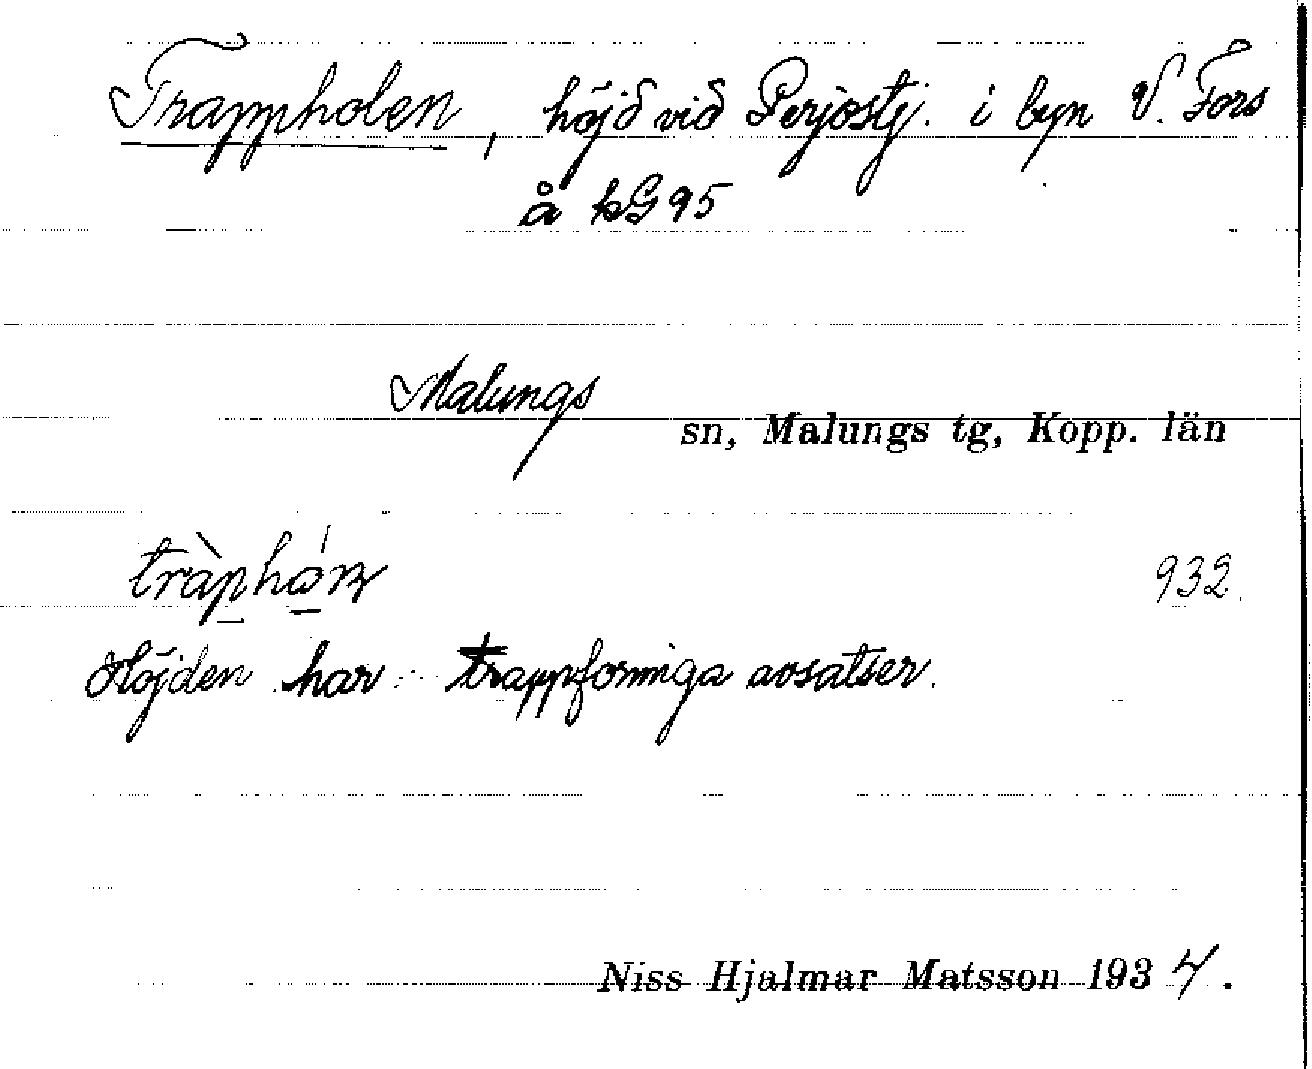 Trappholen, höjd vid Perjostj. i byn V. Fors
å kG95
Malungs
sn, Malungs tg, Kopp. län
932.
Höjden har trappformiga avsatser.
Niss Hjalmar Matsson 1934.